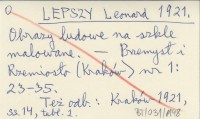 LEPSZY Leonard 1921.
Obrazy ludowe na szkle
malowane. — Przemysł i
Rzemiosło (Kraków) nr 1:
23-35.
Też odb.: Kraków 1921,
ss. 14, tabl. 1.